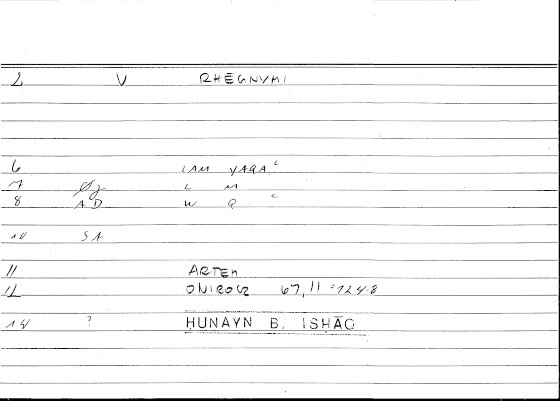 2 V RHĒGNYMI
6 LAM YAQA ʿ
7 Øj L M
8 AD W Q ʿ
10 SA
11 ARTEM
12 ONIROCR 67,11 = 124.8
14 ? HUNAYN B. ISHĀQ